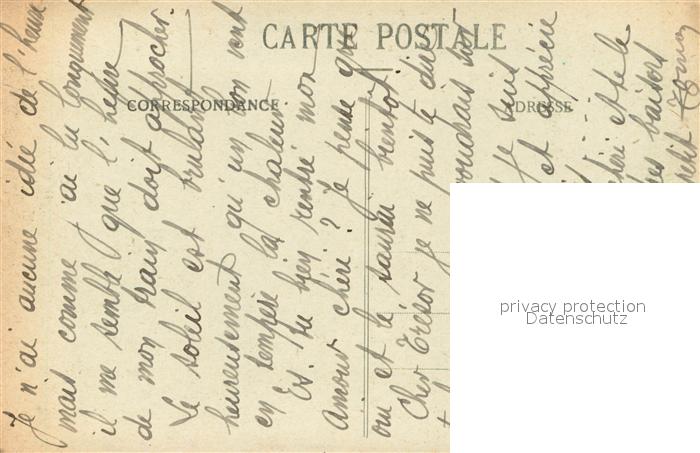 CARTE POSTALE
CORRESPONDANCE
ADRESSE
Je n'ai aucune idée de l'heure
mais comme j'ai lu longuement
il me semble que l'heure
de mon train doit approcher.
Le soleil est brulant
heureusement qu'un bon vent
en tempère la chaleur.
Es-tu bien rentré mon
Amour chéri? Je pense que
oui et le saurai bientôt.
Cher Trésor je ne puis te di
voudrais
je suis
et apprécie
chéri et te le
es baisers
privacy protection
Datenschutz